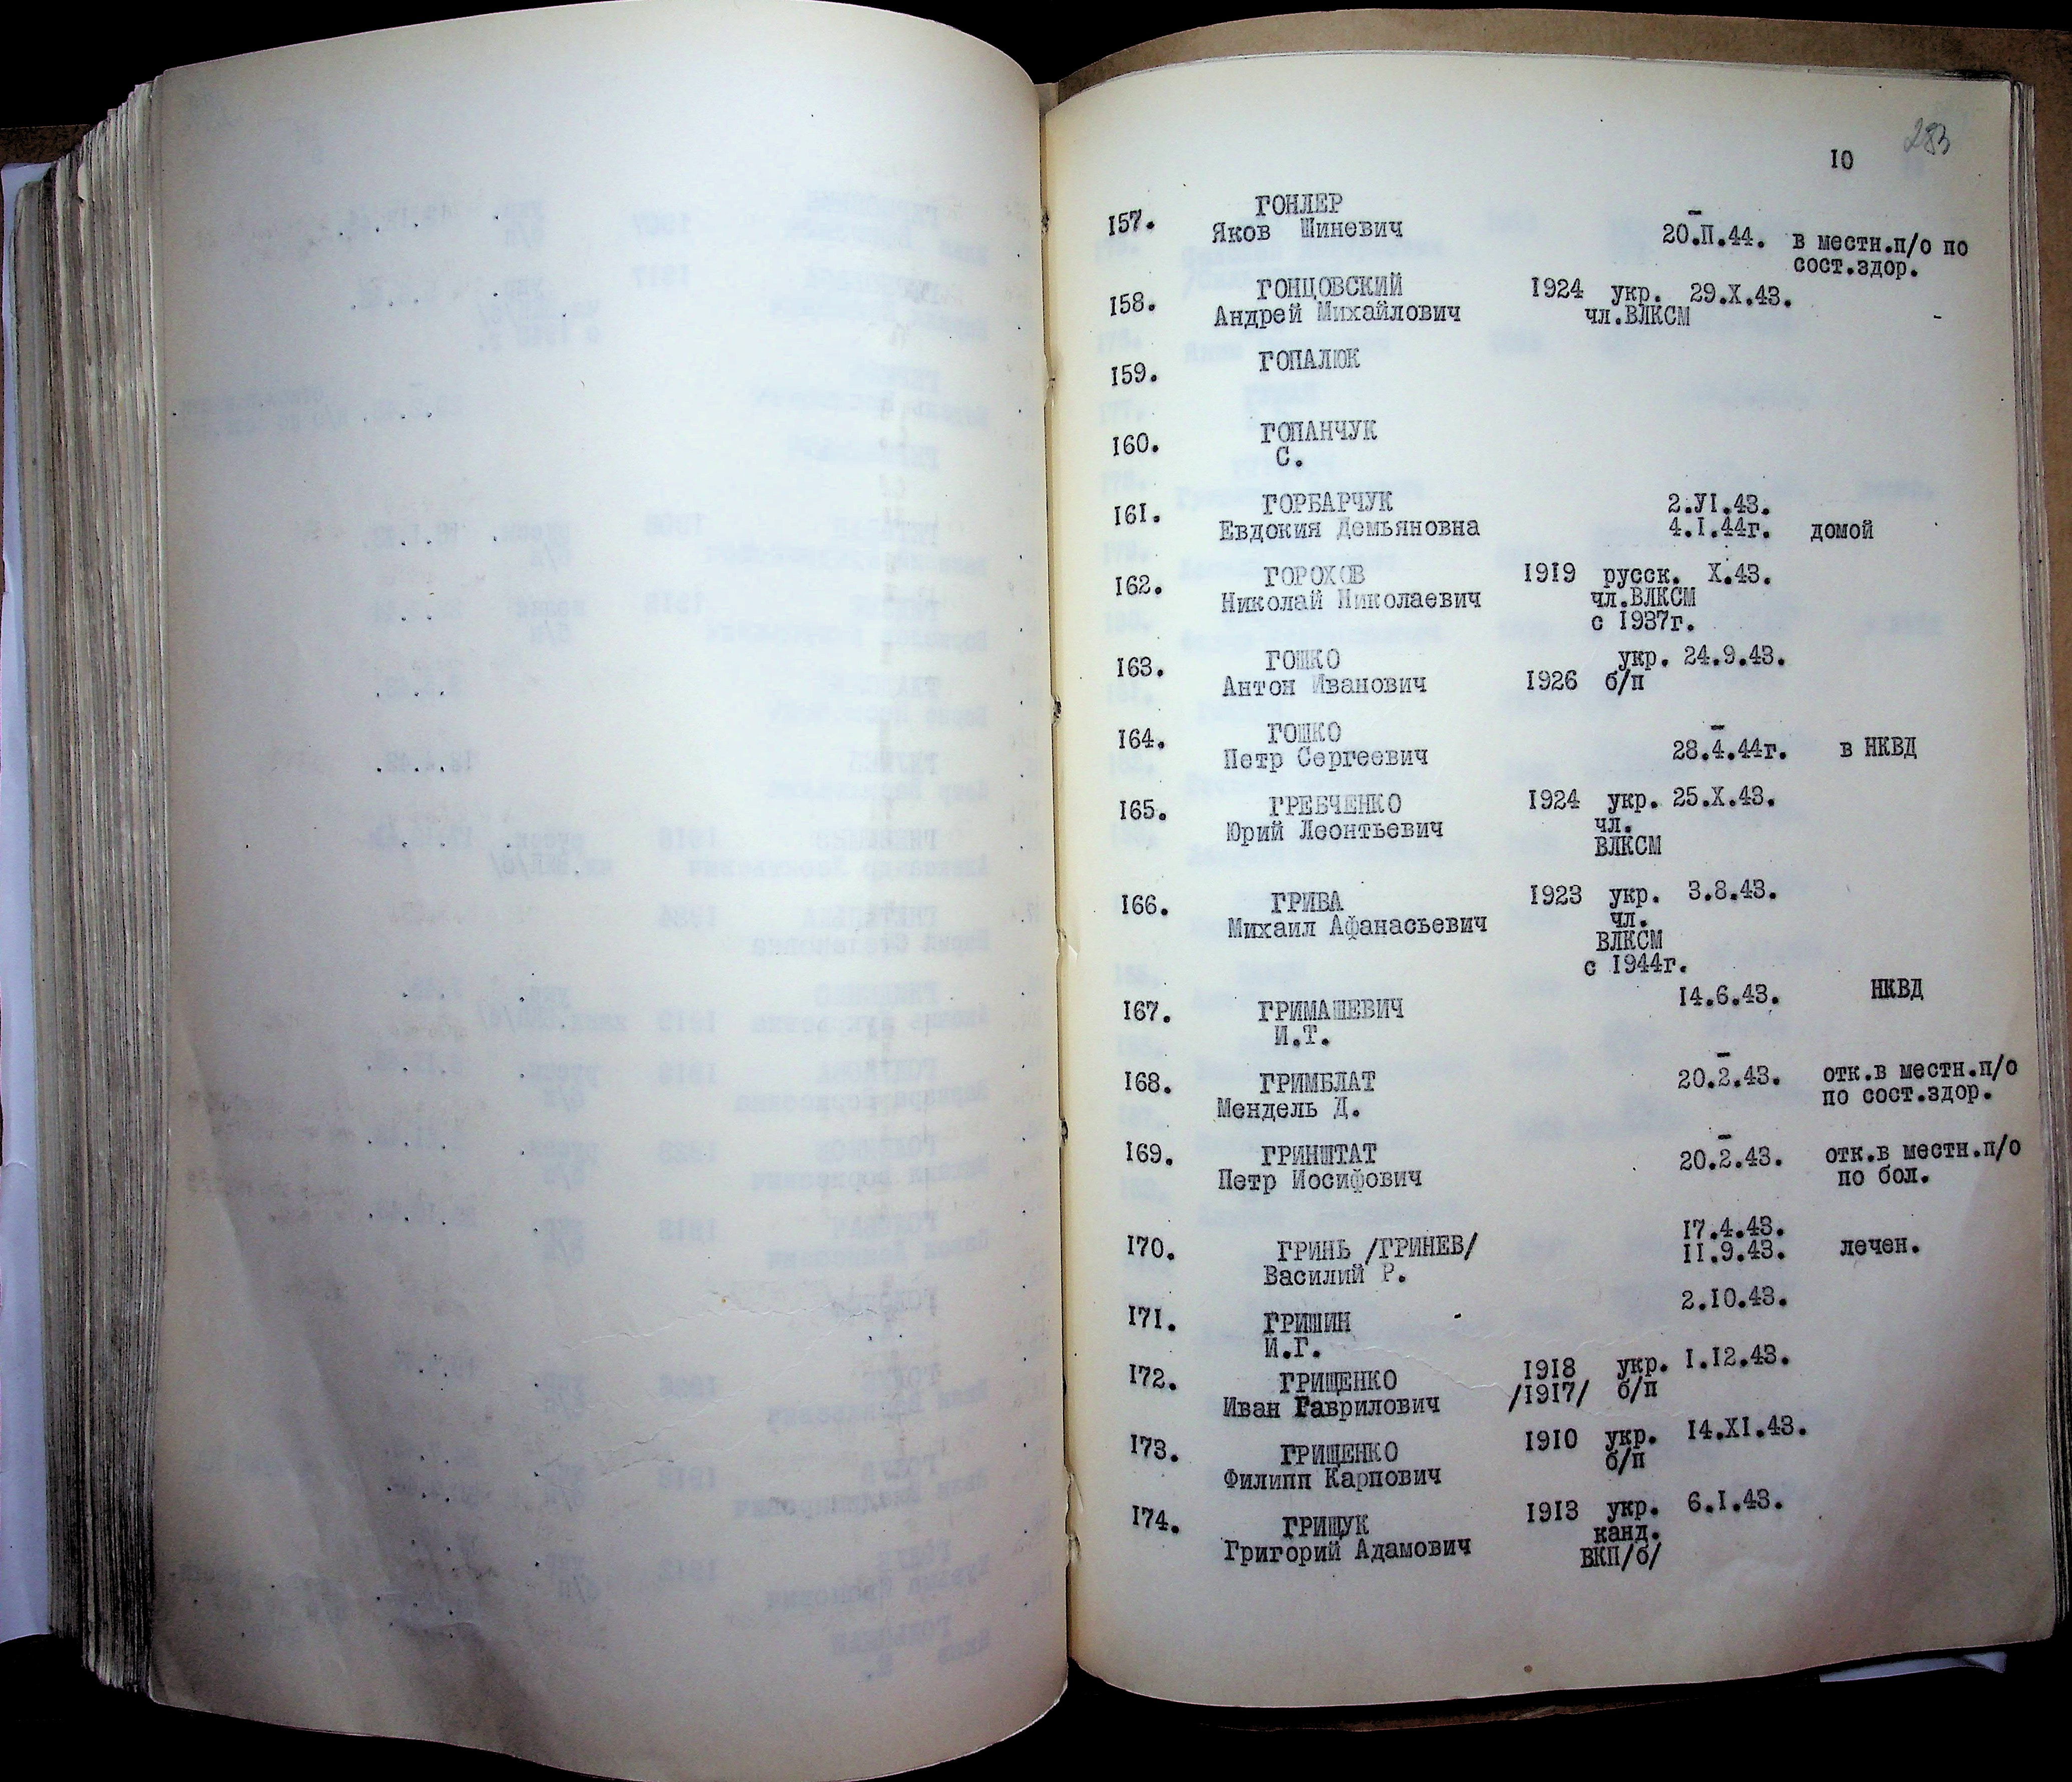 283
10
157. ГОНДЕР
Яков Шиневич
-
20.П.44. в местн.п/о по
сост.здор.
158. ГОНЦОВСКИЙ 1924 укр. 29.X.43.
Андрей Михайлович чл.ВЛКСМ -
159. ГОПАЛЮК
160. ГОПАНЧУК
С.
161. ГОРБАРЧУК 2.УI.43.
Евдокия Демьяновна 4.I.44г. домой
162. ГОРОХОВ 1919 русск. X.43.
Николай Николаевич чл.ВЛКСМ
с 1937г.
163. ГОШКО укр. 24.9.43.
Антон Иванович 1926 б/п
164. ГОШКО -
Петр Сергеевич 28.4.44г. в НКВД
165. ГРЕБЧЕНКО 1924 укр. 25.X.43.
Юрий Леонтьевич чл.
ВЛКСМ
166. ГРИВА 1923 укр. 3.8.43.
Михаил Афанасьевич чл.
ВЛКСМ
с 1944г.
167. ГРИМАШЕВИЧ 14.6.43. НКВД
И.Т.
168. ГРИМБЛАТ -
20.2.43. отк.в местн.п/о
Мендель Д. по сост.здор.
169. ГРИНШТАТ -
20.2.43. отк.в местн.п/о
Петр Иосифович по бол.
170. ГРИНЬ /ГРИНЕВ/ 17.4.43.
Василий Р. 11.9.43. лечен.
171. ГРИШИН 2.10.43.
И.Г.
172. ГРИЩЕНКО 1918 укр. 1.12.43.
Иван Гаврилович /1917/ б/п
173. ГРИЩЕНКО 1910 укр. 14.XI.43.
Филипп Карпович б/п
174. ГРИЩУК 1913 укр. 6.I.43.
Григорий Адамович канд.
ВКП/б/